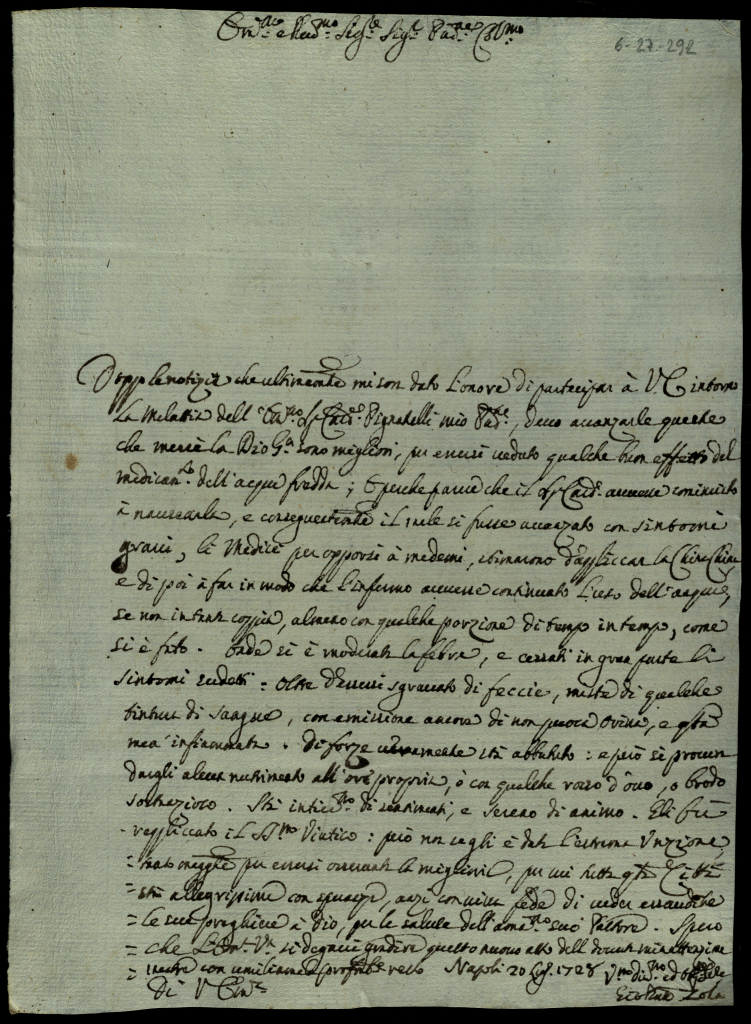 Em.mo e Rev.mo Sig.re Sig.r Pad.ne Col.mo
6-27-292
Doppo le notizie che ultimamente mi son dato l'onore di partecipar à V. E. intorno
la malattia dell' Em.mo Sig. Card.l Pignatelli mio Pad.ne, devo avanzarle queste
che mercè la Dio G.a sono migliori, per essersi veduto qualche buon effetto del
medicam.to dell'acqua fredda; E perche parve che il Sig. Card. avesse cominciato
à nausearla, e conseguentemente il male si fusse avanzato con sintomi
gravi, li Medici per opporsi à medemi, stimarono d'appliccar la ChinaChina
e di poi à far in modo che l'infermo avesse continuato l'uso dell'acqua,
se non in tanta coppia, almeno con qualche porzione di tempo in tempo, come
si è fatto. Onde si è moderata la febre, e cessati in gran parte li
sintomi sudetti: oltre d'essersi sgravato di feccie, miste di qualche
tintura di sangue, con emissione ancora di non puoca orina, e q.sta
mea' infiammata. Di forze veramente stà abbattuto: e però si procura
dargli alcun nutrimento all'ore proprie, ò con qualche rosso d'ovo, o brodo
sostanzioso. Stà intie.mo di sentimenti, e sereno di animo. Eli fù
reppliccato il SS.mo Viatico: però non se gli è data l'estrema Unzione,
per essersi osservate le migliorie, per cui tutta q.sta Città
stà allegrissima con speranza, anzi con viva fede di veder essaudite
le sue preghiere à Dio, per la salute dell'ama.mo suo Pastore. Spero
che L'Em. V.a si degnerà gradire questo nuovo atto dell'
con umiliarmele resto Napoli 20 1728 V.mo div.mo ed obl.mo
Di V. Em.za